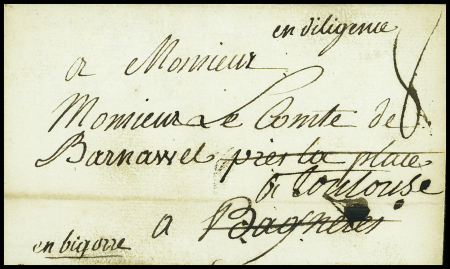 en diligence
a Monsieur
Monsieur Le Comte de
Barnawel près la place
a Toulouse
a Bagneres
en bigorre